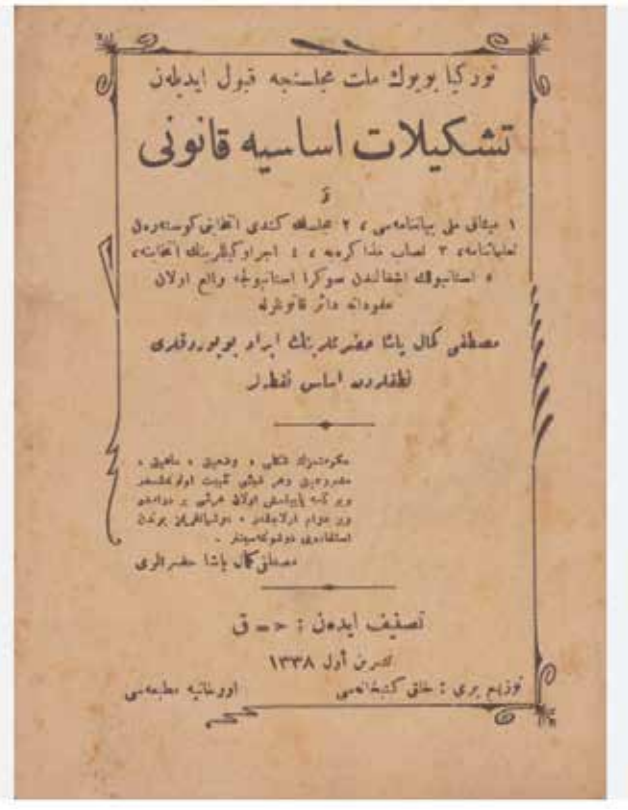 توركيا بويوك ملت مجلسنجه قبول ايديلەن
تشكيلات اساسيه قانونى
و
١ ميثاق ملى بياننامه‌سى ، ٢ مجلسك كندى انتخابى كوستەرەن
تعليماتنامه، ٣ نصاب مذاكره‌يه ، ٤ اجرا وكيللرينك انتخابنه،
٥ استانبولك اشغالندن سوكرا استانبولجه واقع اولان
عقوداته دائر قانونلرله
مصطفى كمال پاشا حضرتلرينك ايراد بويوردقلرى
نطقلردن اساس نقطه‌لر
حكومتمزك شكلى ، وضعيتى ، ماهيتى ،
مشروعيتى وهر شيئى تثبيت اولونمشدر
استفاده‌يى دوشونمه‌سينلر .
مصطفى كمال پاشا حضرتلرى
تصنيف ايدەن : ح ــ ق
تشرين أول ١٣٣٨
توزيع يرى : خلق كتبخانه‌سى
اورخانيه مطبعه‌سى